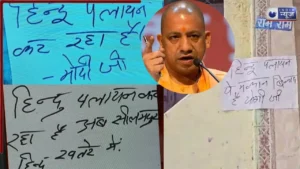 हिन्दू पलायन
कर रहा है।
- मोदी जी
हिन्दू पलायन कर
रहा है अब सीलमपुर
हिन्दू खतरे में
राम राम
हिन्दू पलायन
है योगी जी